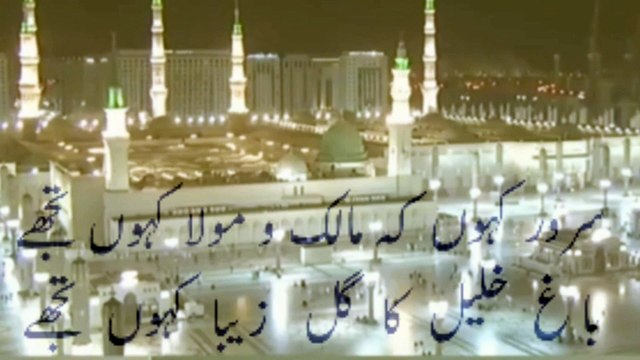 سرور کہوں کہ مالک و مولا کہوں تجھے
باغ خلیل کا گل زیبا کہوں تجھے